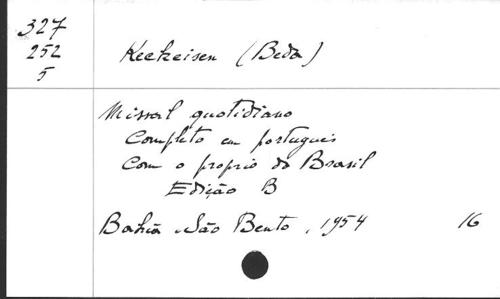 327
252
5
Keckeisen (Beda)
Missal quotidiano
Completo em português
Com o proprio do Brasil
Edição B
Bahia São Bento, 1954 16